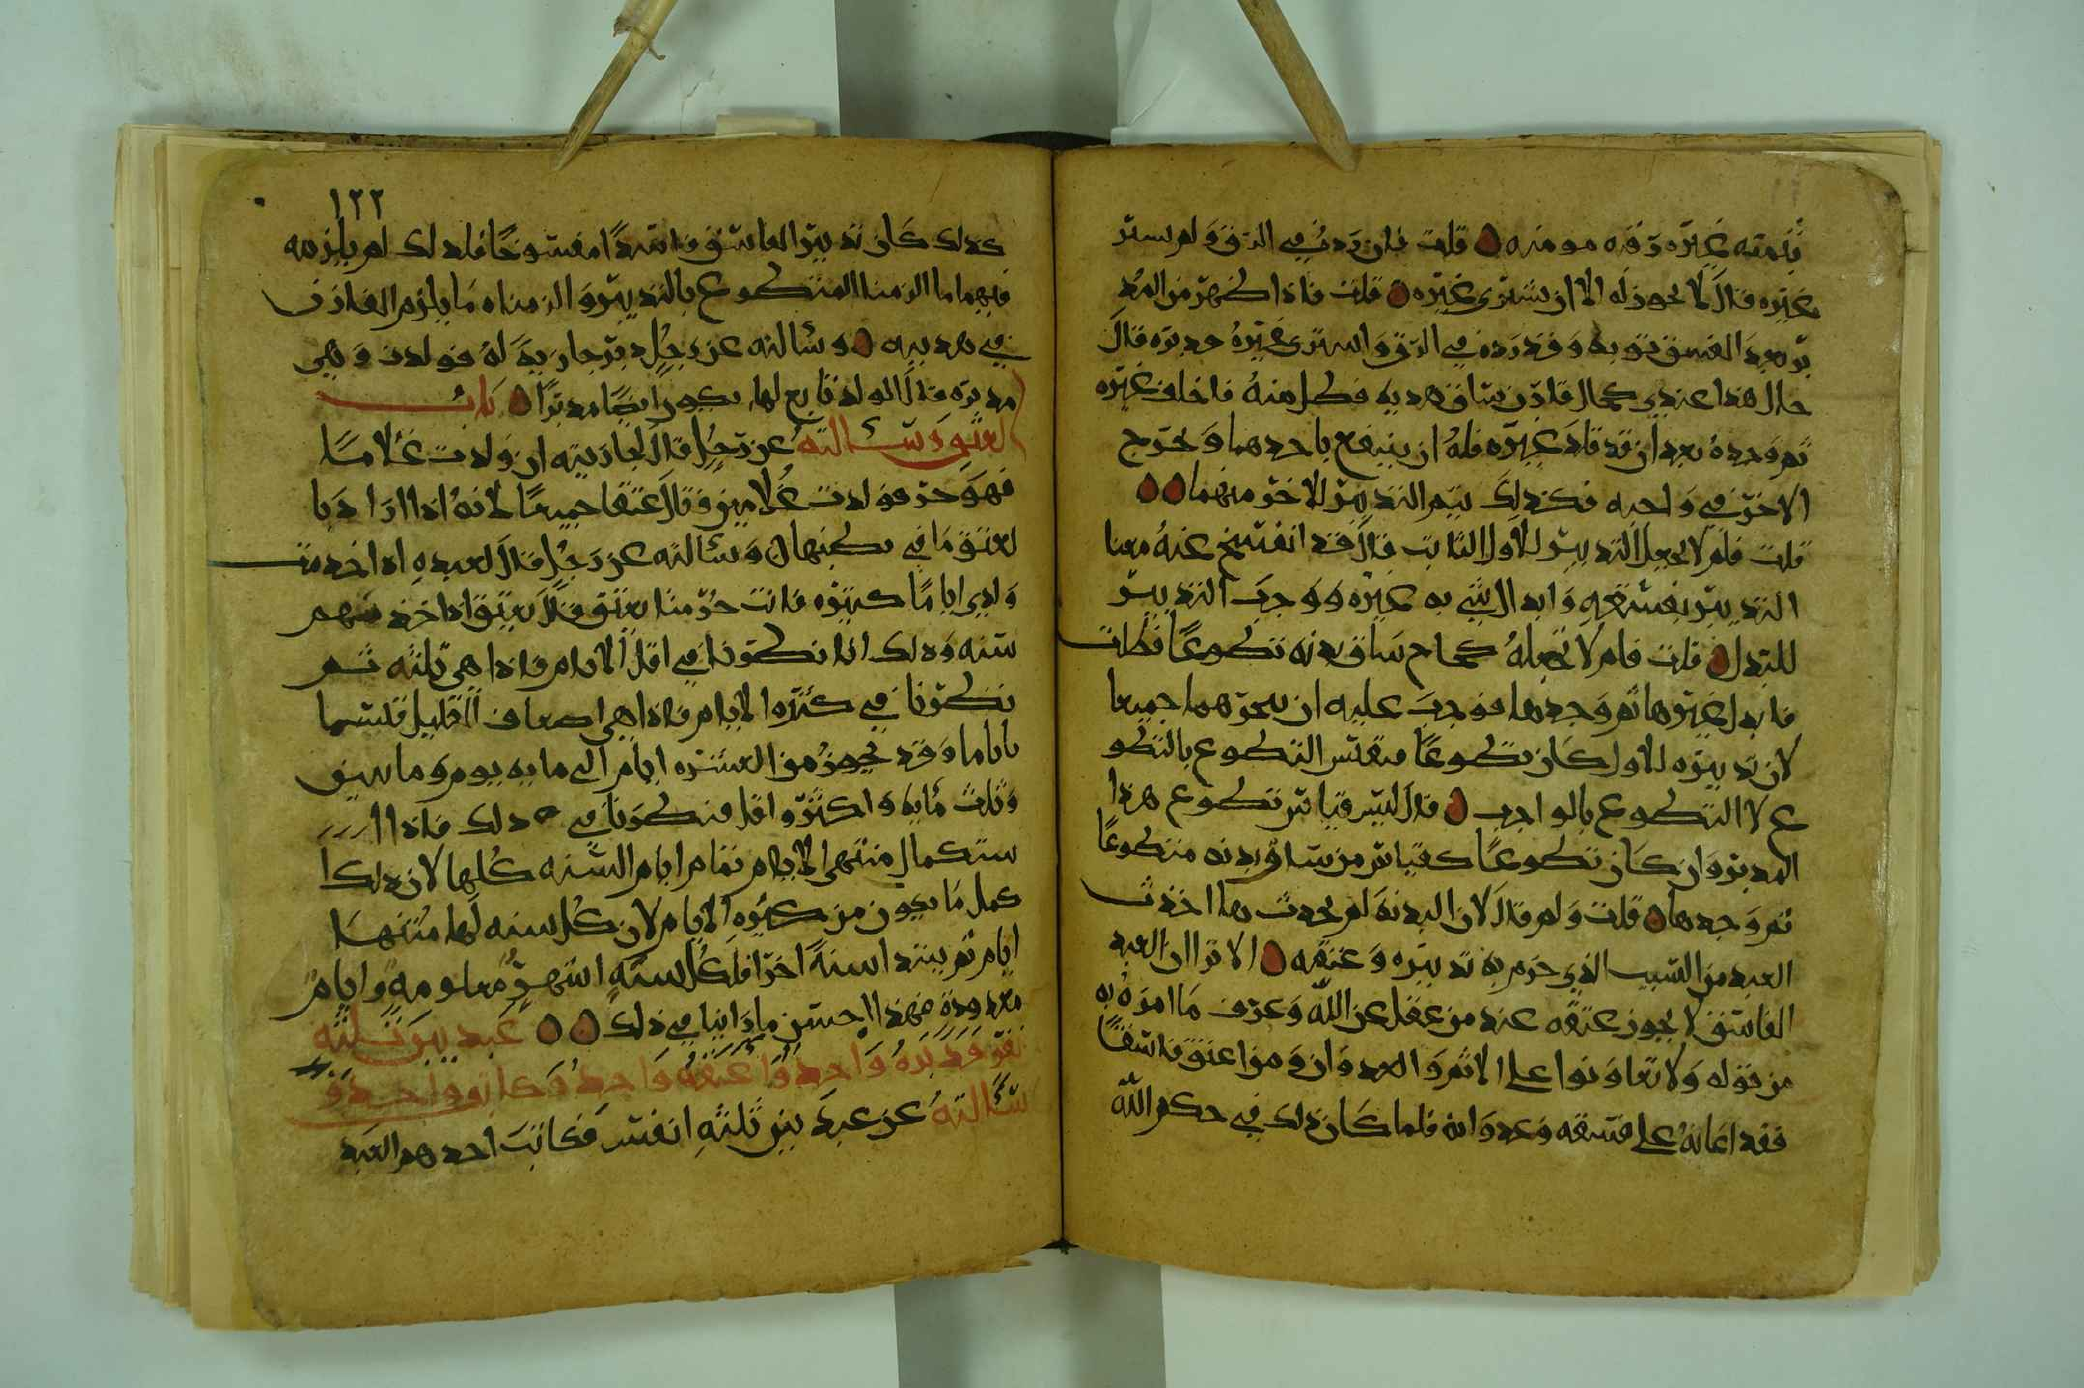 بثمنه غيره رقبه مومنه ۞ قلت فان رده في الرق ولم يستر
غيره قال لا يجوز له الا ان يشتري غيره ۞ قلت فاذا ظهر من المد
بر بعد الفسق توبة وقد رده في الرق واشترى غيره ودبره قال
حال هذا عندي كحال قارن ساق هديه فضل منه فاخلف غيره
ثم وجده بعد ان قد قلد غيره فله ان ينتفع باحدهما ويخرج
الاخر في واجبه فكذلك يتم التدبير للاخر منهما ۞۞
قلت فلم لا يجعل التدبير للاول الثابت قال قد انفسخ عنه معنا
التدبير بفسقه وابدال سيده غيره ووجب التدبير
للبدل ۞ قلت فلم لا تجعله كحاج ساق بدنه تطوعا فضلت
فابدل غيرها ثم وجدها فوجب عليه ان ينحرهما جميعا
لان تدبيره للاول كان تطوعا فيقس التطوع بالتطو
ع لا التطوع بالواجب ۞ قال ليس قياس تطوع هذا
المدبر وان كان تطوعا كقياس من ساق بدنه متطوعا
ثم وجدها ۞ قلت ولم قال لان البدنة لم يحدث بها ما احدث
العبد من السبب الذي حرم به تدبيره وعتقه ۞ الا ترا ان العبد
الفاسق لا يجوز عتقه عند من عقل عن الله وعرف ما امره به
من قوله ولا تعاونوا على الاثم والعدوان ومن اعتق فاسقا
فقد اعانه على فسقه وعدوانه فلما كان ذلك في حكم الله
١٢٢
كذلك كان تدبير الفاسق فاسدا مفسوخا فلذلك لم يلزمه
فيهما ما الزمنا المتطوع بالتدبير والزمناه ما يلزم القارن
في هديه ۞ وسالته عن رجل دبر جارية له فولدت وهي
مدبره قال المولد تابع لها يكون ايضا مدبرا ۞ باب
العتق وسالته عن رجل قال لجاريته ان ولدت غلاما
فهو حر فولدت غلامين فقال عتقا جميعا لانه اذا اراد با
لعتق ما في بطنها ۞ وسالته عن رجل قال لعبده اذا خدمت
ولدي اياما كثيره فانت حر متا يعتق قال يعتق اذا خدمهم
سنه وذلك انا نظرنا في اقل الايام فاذا هي ثلثه ثم
نظرنا في كثره الايام فاذا هي اضعاف القليل فليسما
باياما وقد يجوز من العشره ايام الى مايه يوم وماتين
وثلث مايه واكثر واقل فنظرنا في ذلك فاذا ا
ستكمال منتهى الايام تمام ايام السنه كلها لان ذلك ا
كمل ما يكون من كثره الايام لان كل سنه لها منتها
ايام ثم يبتدا سنة اخرا فلكل سنه اشهر معلومه وايام
معدوده فهذا احسن ما راينا في ذلك ۞۞ عبد بين ثلثه
نفر فدبره واحد واعتقه واحد وكاتبه واحد و
سالته عن عبد بين ثلثه انفس فكاتب احدهم العبد